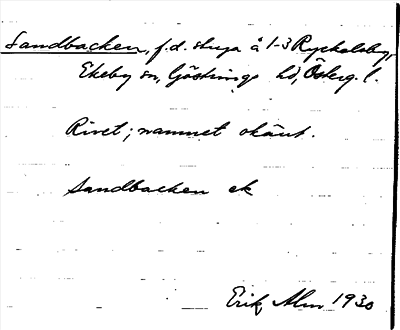 Sandbacken, f.d. stuga å 1-3 Ryckelsby,
Ekeby sn, Göstrings hd, Österg. l.
Rivet; namnet okänt.
Sandbacken ek
Erik Alm 1930